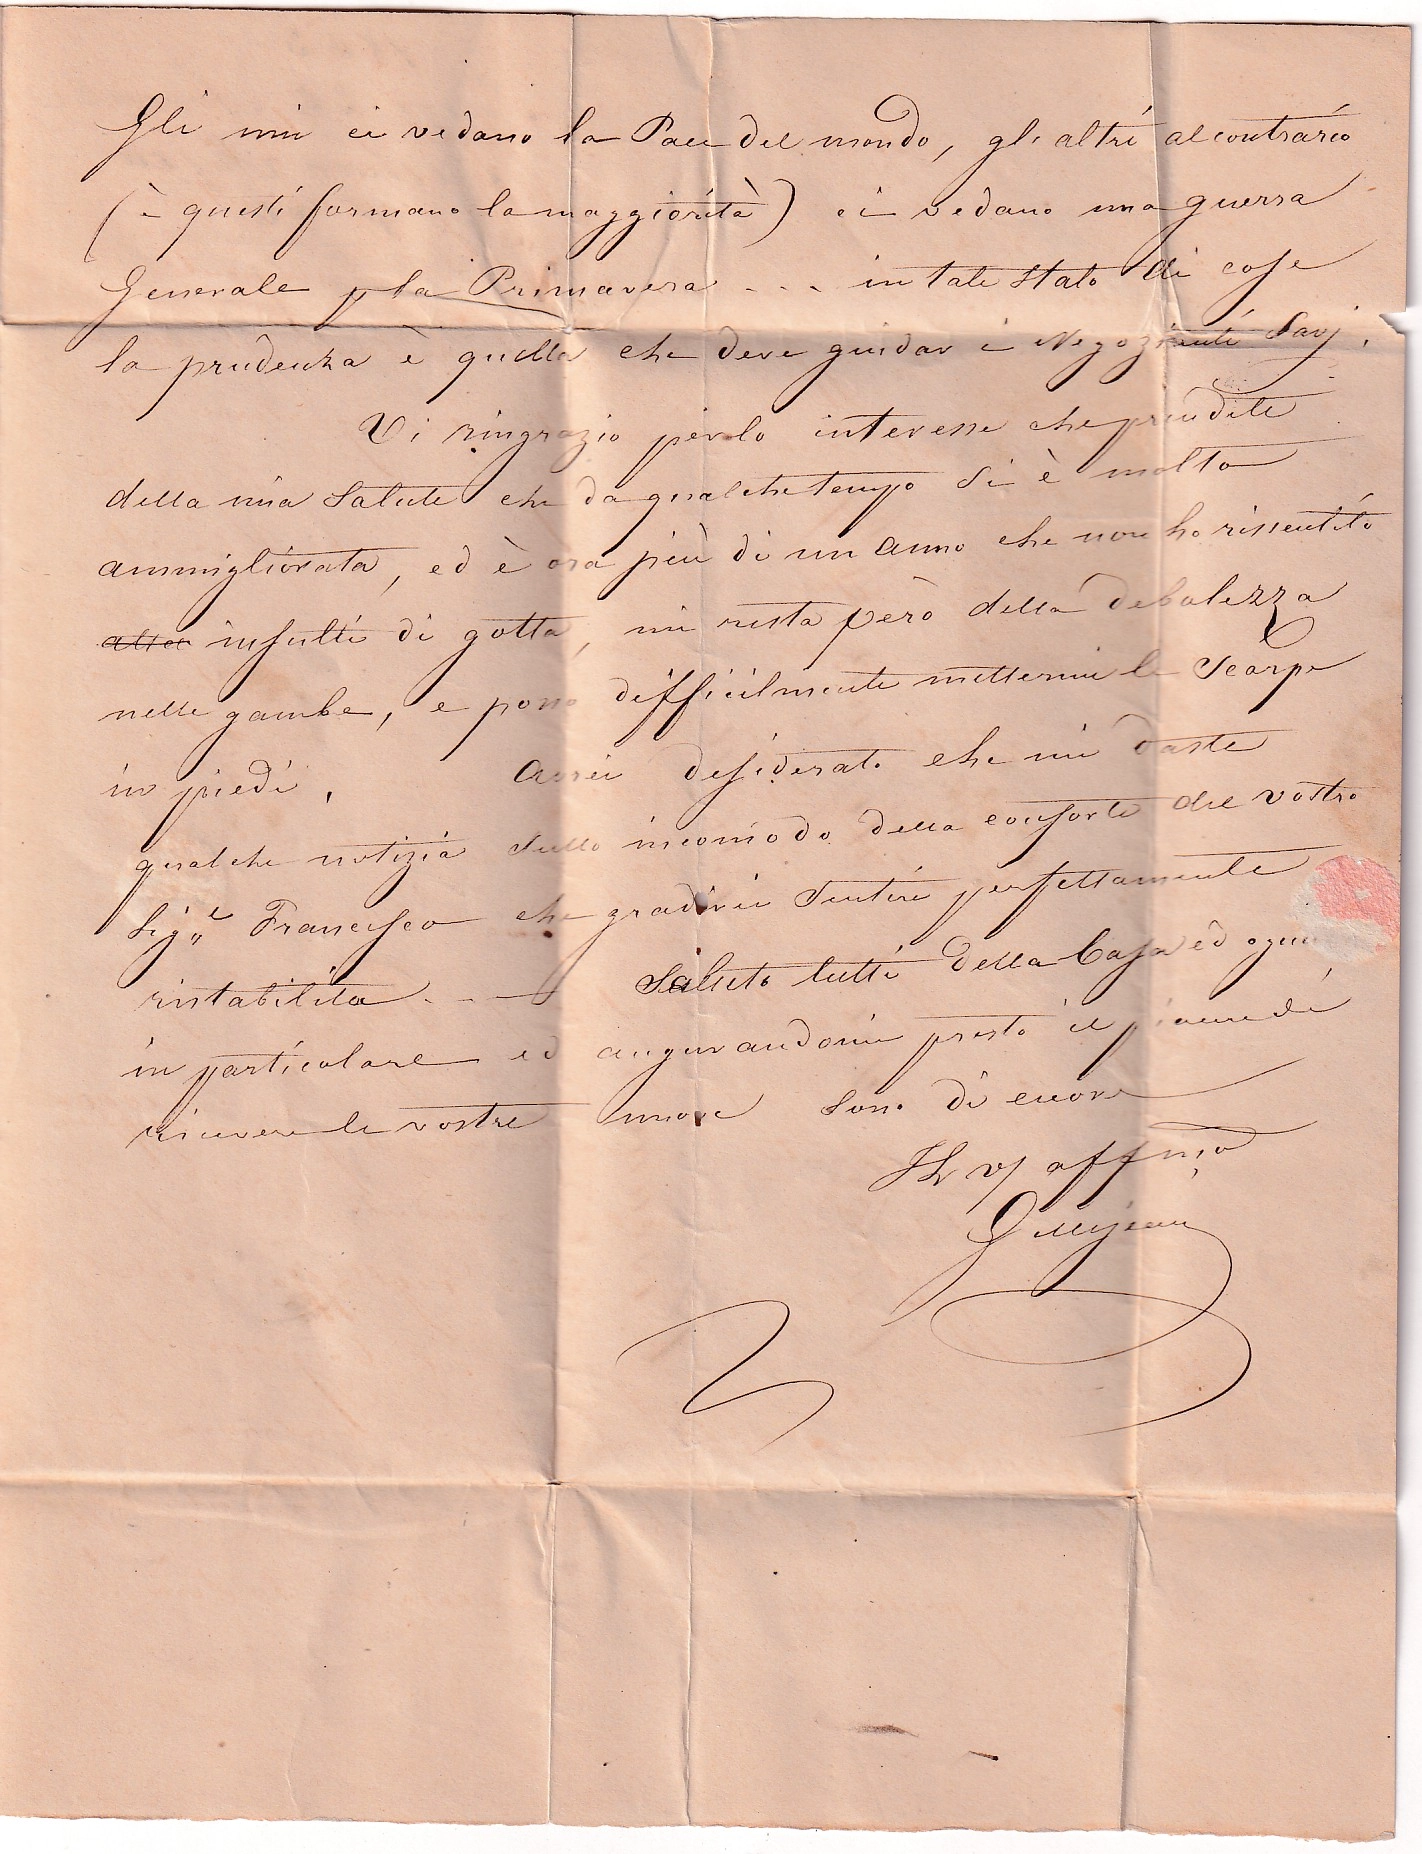 Gli uni ci vedano la Pace del mondo, gli altri al contrario
(è questi formano la maggiorità) ci vedano una guerra
Generale p la Primavera - - - in tale stato di cose
la prudenza è quella che deve guidar i Negozianti Savj.
Vi ringrazio per lo interesse che prendete
della mia salute che da qualche tempo si è molto
ammigliorata, ed è ora più di un anno che non ho rissentito
insulti di gotta, mi resta però della debolezza
nelle gambe, e posso difficilmente mettermi le Scarpe
in piedi. Avrei desiderato che mi daste
qualche notizia sullo incomodo della consorte del vostro
Sigr Francesco che gradirei sentire perfettamente
ristabilita - - - Saluto tutti della Casa ed ognun
in particolare ed augurandomi presto il piacere di
ricevere le vostre nuove sono di cuore
Il vs affmo